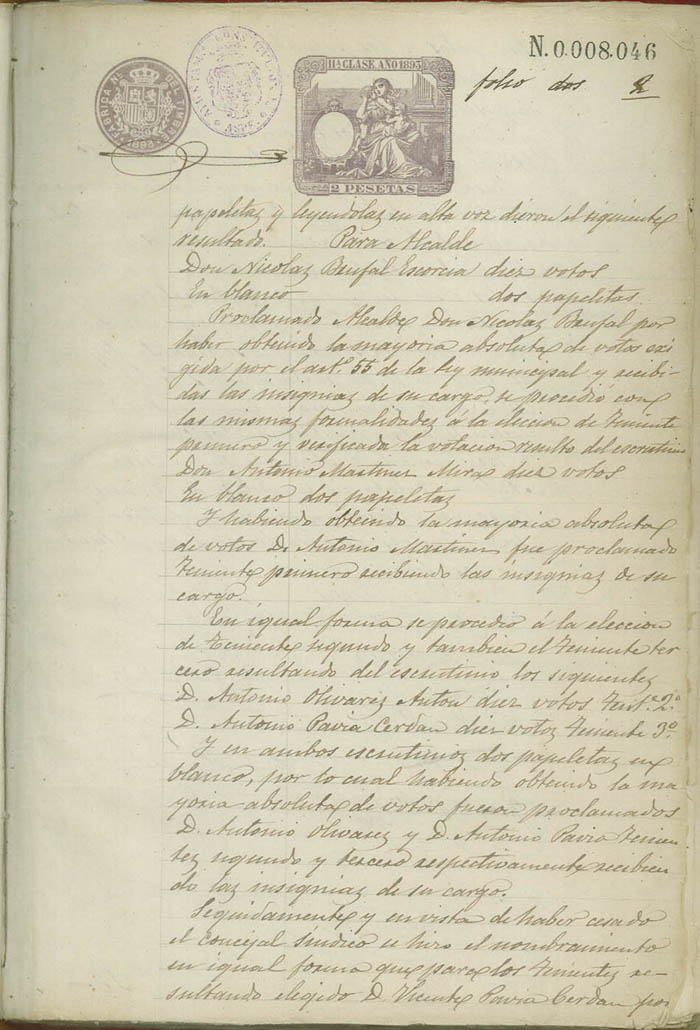 N.0.008.046
11ª CLASE AÑO 1893
folio dos 2
FABRICA NAL DEL TIMBRE
1893
AYUNTAMIENTO CONSTITUCIONAL
ASPE
2 PESETAS
papeletas y leyendolas en alta voz dieron el siguiente
resultado. Para Alcalde
Don Nicolas Benfal Escorcia diez votos
En blanco dos papelitas
Proclamado Alcalde Don Nicolas Benfal por
haber obtenido la mayoria absoluta de votos exi
gida por el artº. 55 de la ley municipal y recibi-
das las insignias de su cargo, se procedió con
las mismas formalidades á la eleccion de Teniente
primero y verificada la votacion resulto del escrutinio
Don Antonio Martinez Mira diez votos
En blanco dos papeletas
Y habiendo obtenido la mayoria absoluta
de votos D. Antonio Martinez fue proclamado
Teniente primero recibiendo las insignias de su
cargo.
En igual forma se procedio á la eleccion
de Teniente segundo y tambien el Teniente ter
cero resultando del escrutinio los siguientes
D. Antonio Olivarez Anton diez votos Tente. 2º
D. Antonio Pavia Cerdan diez votos Teniente 3º
Y en ambos escrutinios dos papeletas en
blanco, por lo cual habiendo obtenido la ma
yoria absoluta de votos fueron proclamados
D. Antonio Olivarez y D. Antonio Pavia Tenien
tes segundo y tercero respectivamente recibien
do las insignias de su cargo.
Seguidamente y en vista de haber cesado
el concejal síndico se hizo el nombramiento
en igual forma que para los Tenientes re-
sultando elegido D. Vicente Pavia Cerdan por